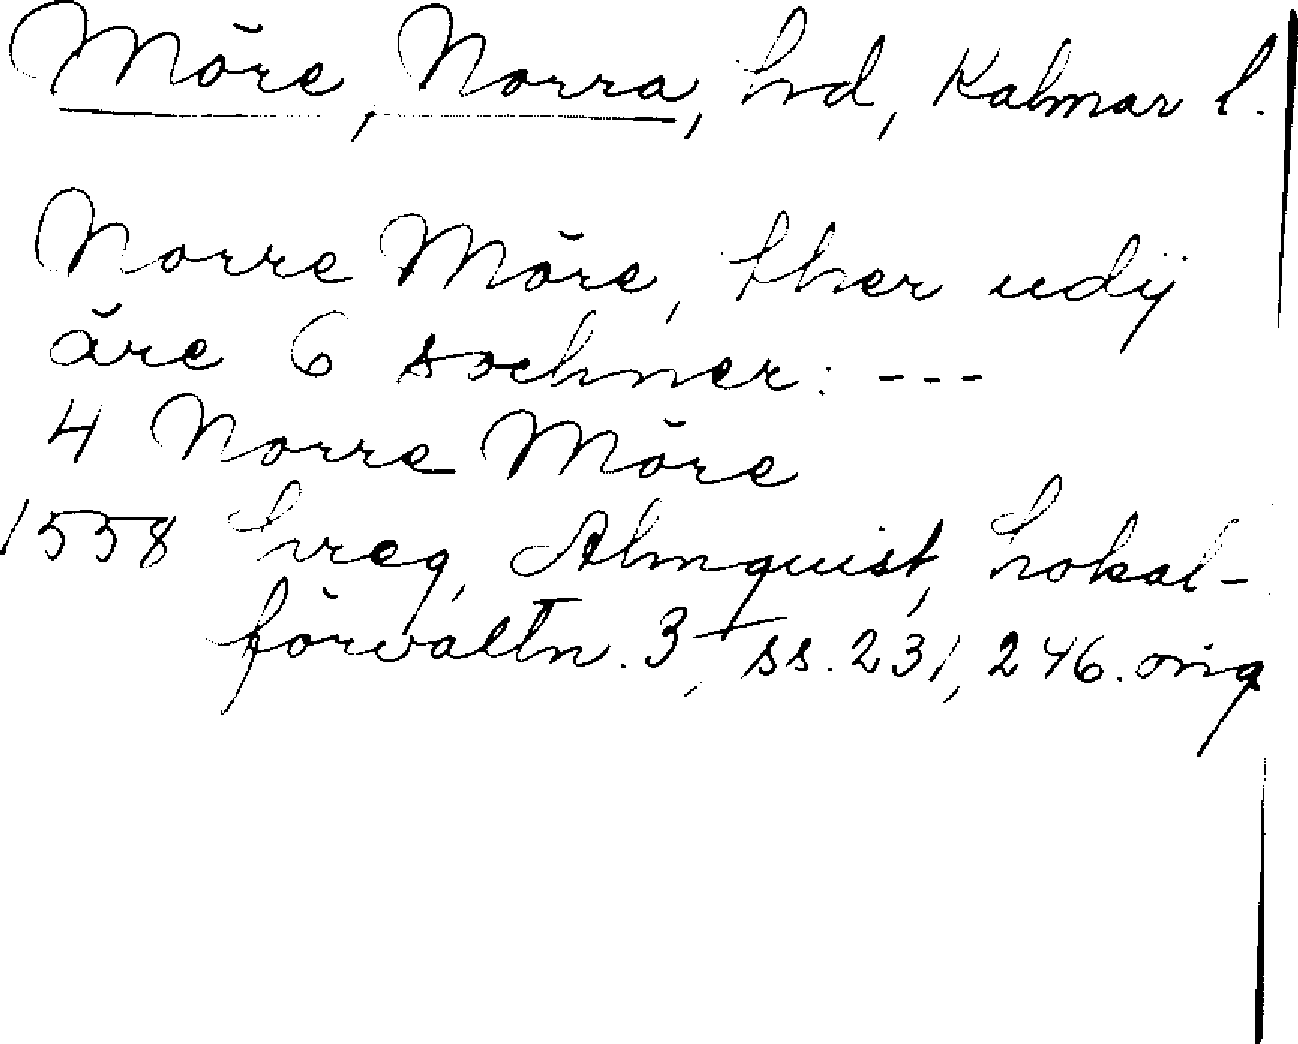 Möre, Norra, hd, Kalmar l.
Norre Möre, ther udij
äre 6 sochner: ---
4 Norre Möre
1558 hreg, Almquist, Lokal-
förvaltn. 3, ss. 231, 246. orig